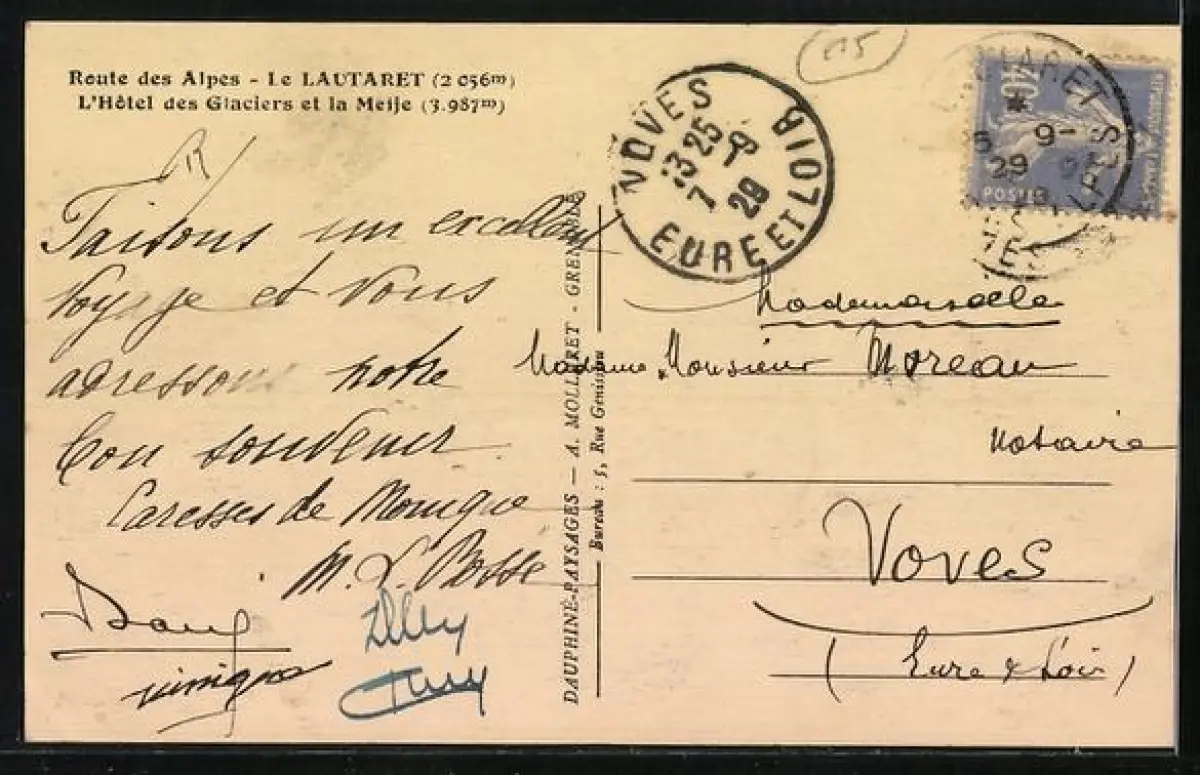 Route des Alpes - Le LAUTARET (2 056m)
L'Hôtel des Glaciers et la Meije (3.987m)
Faisons un excellent
voyage et vous
adressons notre
bon souvenir
Caresses de Monique
M. L. Bosse
Lilly
DAUPHINÉ-PAYSAGES — A. MOLLARET - GRENOBLE
Bureau : 5, Rue Génissieu
VOVES
13 25
7 -9
29
EURE ET LOIR
40
POSTES
9-
29
Mademoiselle
Madame, Monsieur Moreau
Notaire
Voves
(Eure & Loir)